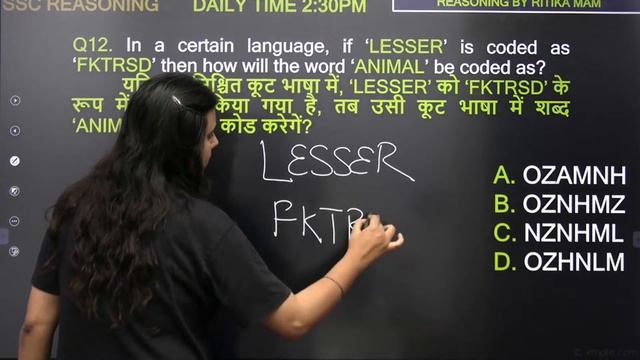 SSC REASONING
DAILY TIME 2:30PM
REASONING BY RITIKA MAM
Q12. In a certain language, if 'LESSER' is coded as
'FKTRSD' then how will the word 'ANIMAL' be coded as?
निश्चित कूट भाषा में, 'LESSER' को 'FKTRSD' के
रूप में किया गया है, तब उसी कूट भाषा में शब्द
कोड करेगें?
LESSER
FKTR
A. OZAMNH
B. OZNHMZ
C. NZNHML
D. OZHNLM